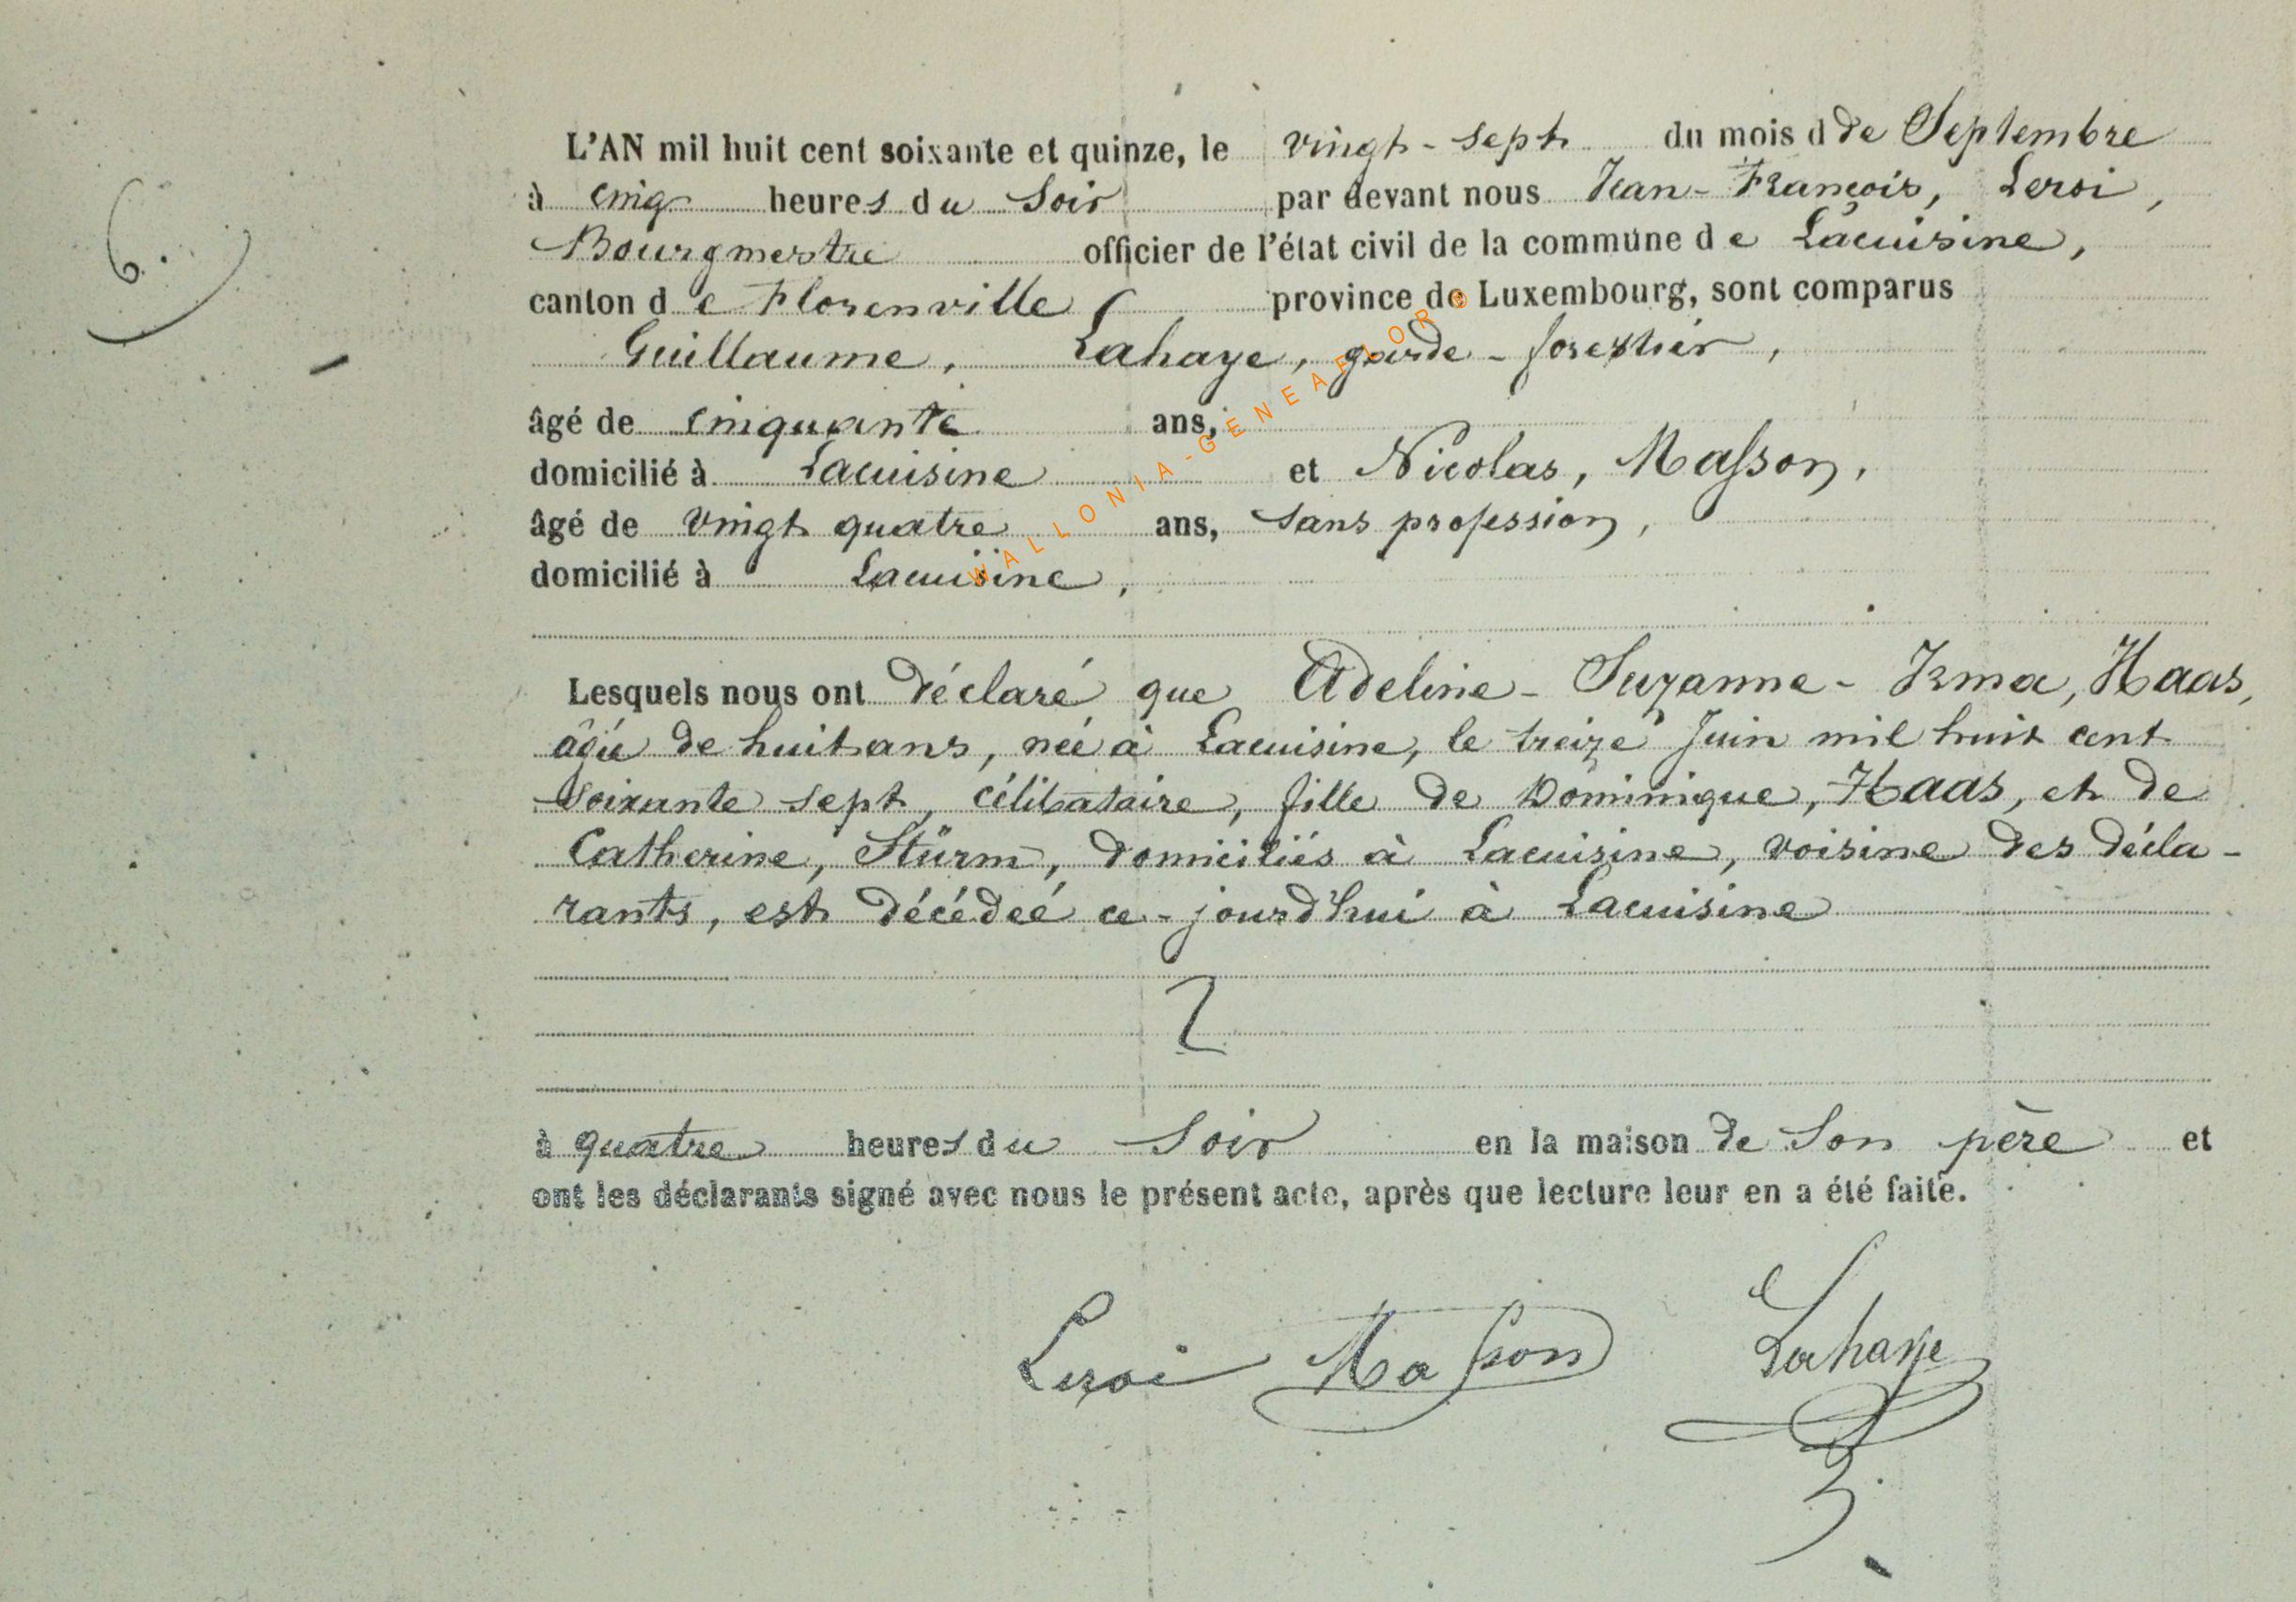 6.
L'AN mil huit cent soixante et quinze, le vingt-sept du mois d de Septembre
à cinq heures du Soir par devant nous Jean-François, Leroi,
Bourgmestre officier de l'état civil de la commune de Lacuisine,
canton de Florenville province de Luxembourg, sont comparus
Guillaume, Lahaye, garde-forestier,
âgé de cinquante ans,
domicilié à Lacuisine et Nicolas, Masson,
âgé de vingt quatre ans, sans profession,
domicilié à Lacuisine,
Lesquels nous ont déclaré que Adeline-Suzanne-Irma, Haas,
âgée de huit ans, née à Lacuisine, le treize Juin mil huit cent
soixante sept, célibataire, fille de Dominique, Haas, et de
Catherine, Stürm, domiciliés à Lacuisine, voisine des décla-
rants, est décédée ce-jourd'hui à Lacuisine
à quatre heures du Soir en la maison de Son père et
ont les déclarants signé avec nous le présent acte, après que lecture leur en a été faite.
Leroi Masson Lahaye
WALLONIA-GENEAFLOR